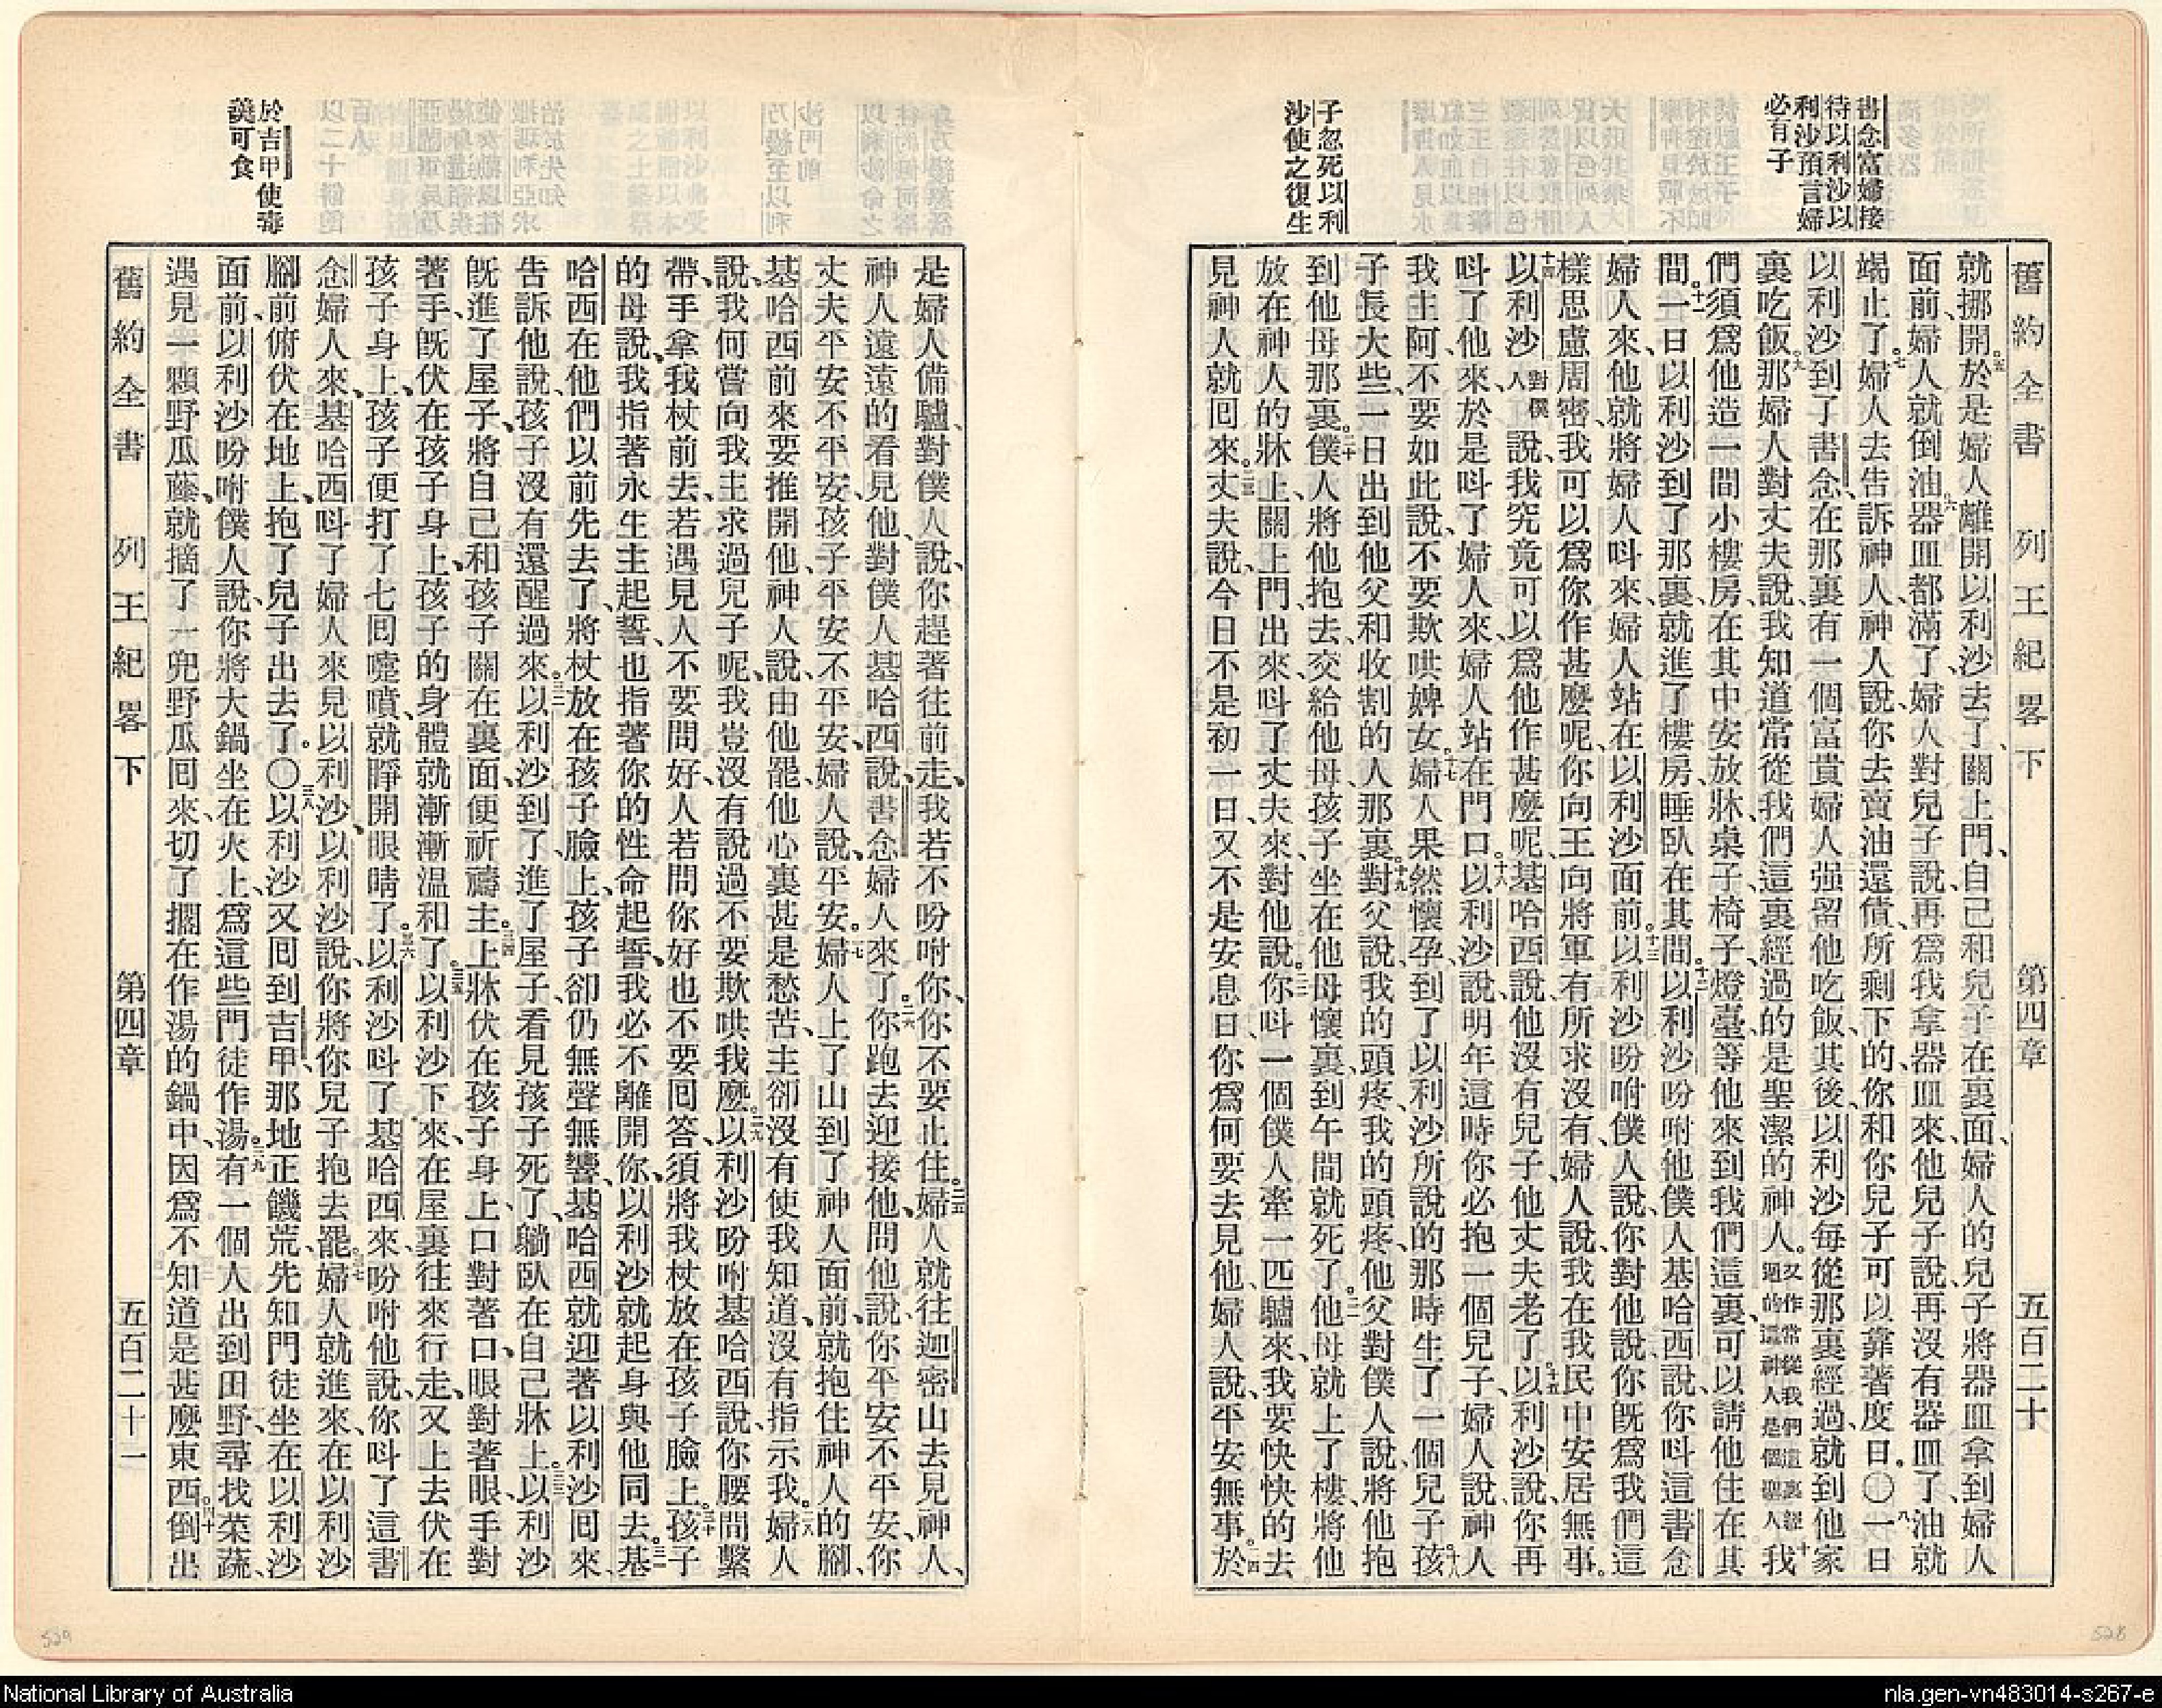 書念富婦接
待以利沙以
利沙預言婦
必有子
子忽死以利
沙使之復生
舊約全書 列王紀畧下 第四章 五百二十
就挪開。五於是婦人離開以利沙去了、關上門、自己和兒子在裏面、婦人的兒子將器皿拿到婦人
面前、婦人就倒油。六器皿都滿了、婦人對兒子說、再爲我拿器皿來、他兒子說、再沒有器皿了、油就
竭止了。七婦人去告訴神人、神人說、你去賣油還債、所剩下的、你和你兒子可以靠著度日。〇八一日
以利沙到了書念、在那裏有一個富貴婦人、强留他吃飯、其後以利沙每從那裏經過、就到他家
裏吃飯。九那婦人對丈夫說、我知道常從我們這裏經過的是聖潔的神人。又作常從我們這裏經過的這神人是個聖人十我
們須爲他造一間小樓房、在其中安放牀桌子、椅子、燈臺、等他來到我們這裏、可以請他住在其
間。十一一日以利沙到了那裏、就進了樓房、睡臥在其間。十二以利沙吩咐他僕人基哈西說、你呌這書念
婦人來、他就將婦人呌來、婦人站在以利沙面前。十三以利沙吩咐僕人說、你對他說、你旣爲我們這
樣思慮周密、我可以爲你作甚麼呢、你向王向將軍有所求沒有、婦人說、我在我民中安居無事。
十四以利沙對僕人說、我究竟可以爲他作甚麼呢、基哈西說、他沒有兒子、他丈夫老了。十五以利沙說、你再
呌了他來、於是呌了婦人來、婦人站在門口。十六以利沙說、明年這時你必抱一個兒子、婦人說、神人
我主阿、不要如此說、不要欺哄婢女。十七婦人果然懷孕、到了以利沙所說的那時生了一個兒子。十八孩
子長大些、一日出到他父和收割的人那裏。十九對父說、我的頭疼、我的頭疼、他父對僕人說、將他抱
到他母那裏。二十僕人將他抱去、交給他母、孩子坐在他母懷裏、到午間就死了。二一他母就上了樓、將他
放在神人的牀上、關上門、出來呌了丈夫來、對他說。二二你呌一個僕人牽一匹驢來、我要快快的去
見神人就囘來。二三丈夫說、今日不是初一日、又不是安息日、你爲何要去見他、婦人說、平安無事。二四於
是婦人備驢對僕人說、你趕著往前走、我若不吩咐你、你不要止住。二五婦人就往迦密山去見神人、
神人遠遠的看見他、對僕人基哈西說、書念婦人來了。二六你跑去迎接他、問他說、你平安不平安、你
丈夫平安不平安、孩子平安不平安、婦人說、平安。二七婦人上了山、到了神人面前、就抱住神人的腳、
基哈西前來要推開他、神人說、由他罷、他心裏甚是愁苦、主卻沒有使我知道、沒有指示我。二八婦人
說、我何嘗向我主求過兒子呢、我豈沒有說過不要欺哄我麼。二九以利沙吩咐基哈西說、你腰間繫
帶、手拿我杖前去、若遇見人不要問好、人若問你好也不要囘答、須將我杖放在孩子臉上。三十孩子
的母說、我指著永生主起誓、也指著你的性命起誓、我必不離開你、以利沙就起身與他同去。三一基
哈西在他們以前先去了、將杖放在孩子臉上、孩子卻仍無聲無響、基哈西就迎著以利沙囘來、
告訴他說、孩子沒有還醒過來。三二以利沙到了、進了屋子、看見孩子死了、躺臥在自己牀上。三三以利沙
旣進了屋子、將自己和孩子關在裏面、便祈禱主。三四上牀伏在孩子身上、口對著口、眼對著眼、手對
著手、旣伏在孩子身上、孩子的身體就漸漸温和了。三五以利沙下來、在屋裏往來行走、又上去伏在
孩子身上、孩子便打了七囘嚏噴、就睜開眼睛了。三六以利沙呌了基哈西來、吩咐他說、你呌了這書
念婦人來、基哈西呌了婦人來見以利沙、以利沙說、你將你兒子抱去罷。三七婦人就進來、在以利沙
腳前、俯伏在地上、抱了兒子出去了。〇三八以利沙又囘到吉甲、那地正饑荒、先知門徒坐在以利沙
面前、以利沙吩咐僕人說、你將大鍋坐在火上、爲這些門徒作湯。三九有一個人出到田野、尋找菜蔬、
遇見一顆野瓜藤、就摘了一兜野瓜囘來、切了擱在作湯的鍋中、因爲不知道是甚麼東西。四十倒出
於吉甲使毒
羹可食
舊約全書 列王紀畧下 第四章 五百二十一
529
528
National Library of Australia
nla.gen-vn483014-s267-e